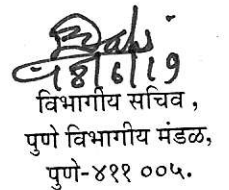 18/6/19
विभागीय सचिव ,
पुणे विभागीय मंडळ,
पुणे-४११ ००५.